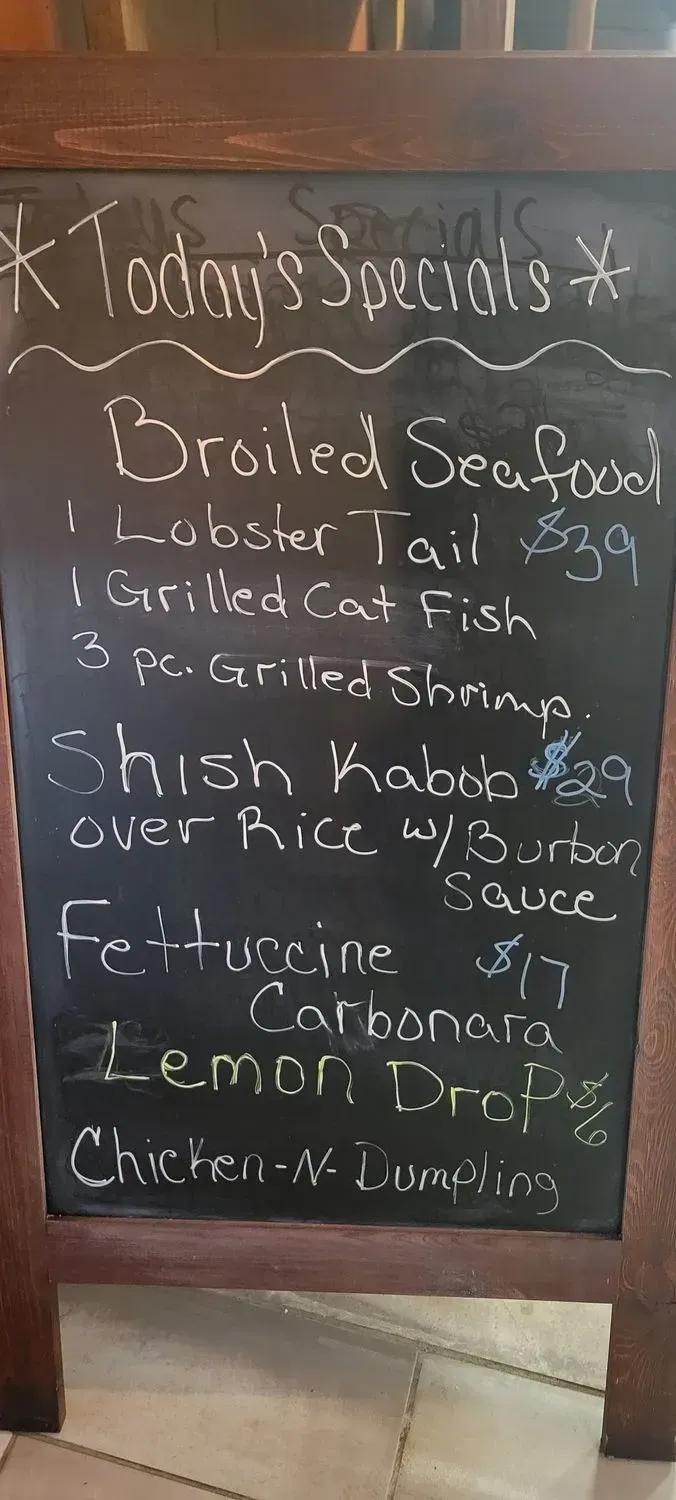 * Today's Specials *
Broiled Seafood
1 Lobster Tail $39
1 Grilled Cat Fish
3 pc. Grilled Shrimp.
Shish Kabob $29
over Rice w/ Burbon
Sauce
Fettuccine $17
Carbonara
Lemon Drop $6
Chicken-N-Dumpling